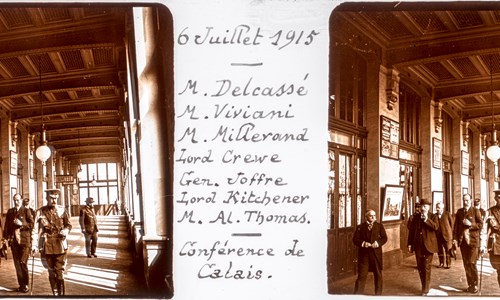 6 Juillet 1915
M. Delcassé
M. Viviani
M. Millerand
Lord Crewe
Gen. Joffre
Lord Kitchener
M. Al. Thomas.
Conférence de
Calais.